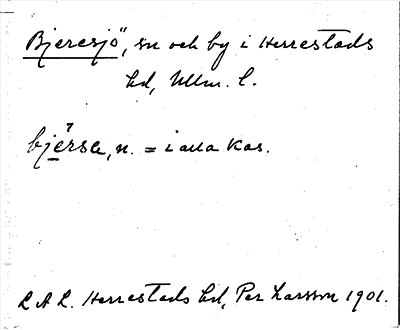 Bjeresjö, sn och by i Herrestads
hd, Mlm. l.
bjèrsa, n. = i alla kas.
L A L. Herrestads hd, Per Larsson 1901.